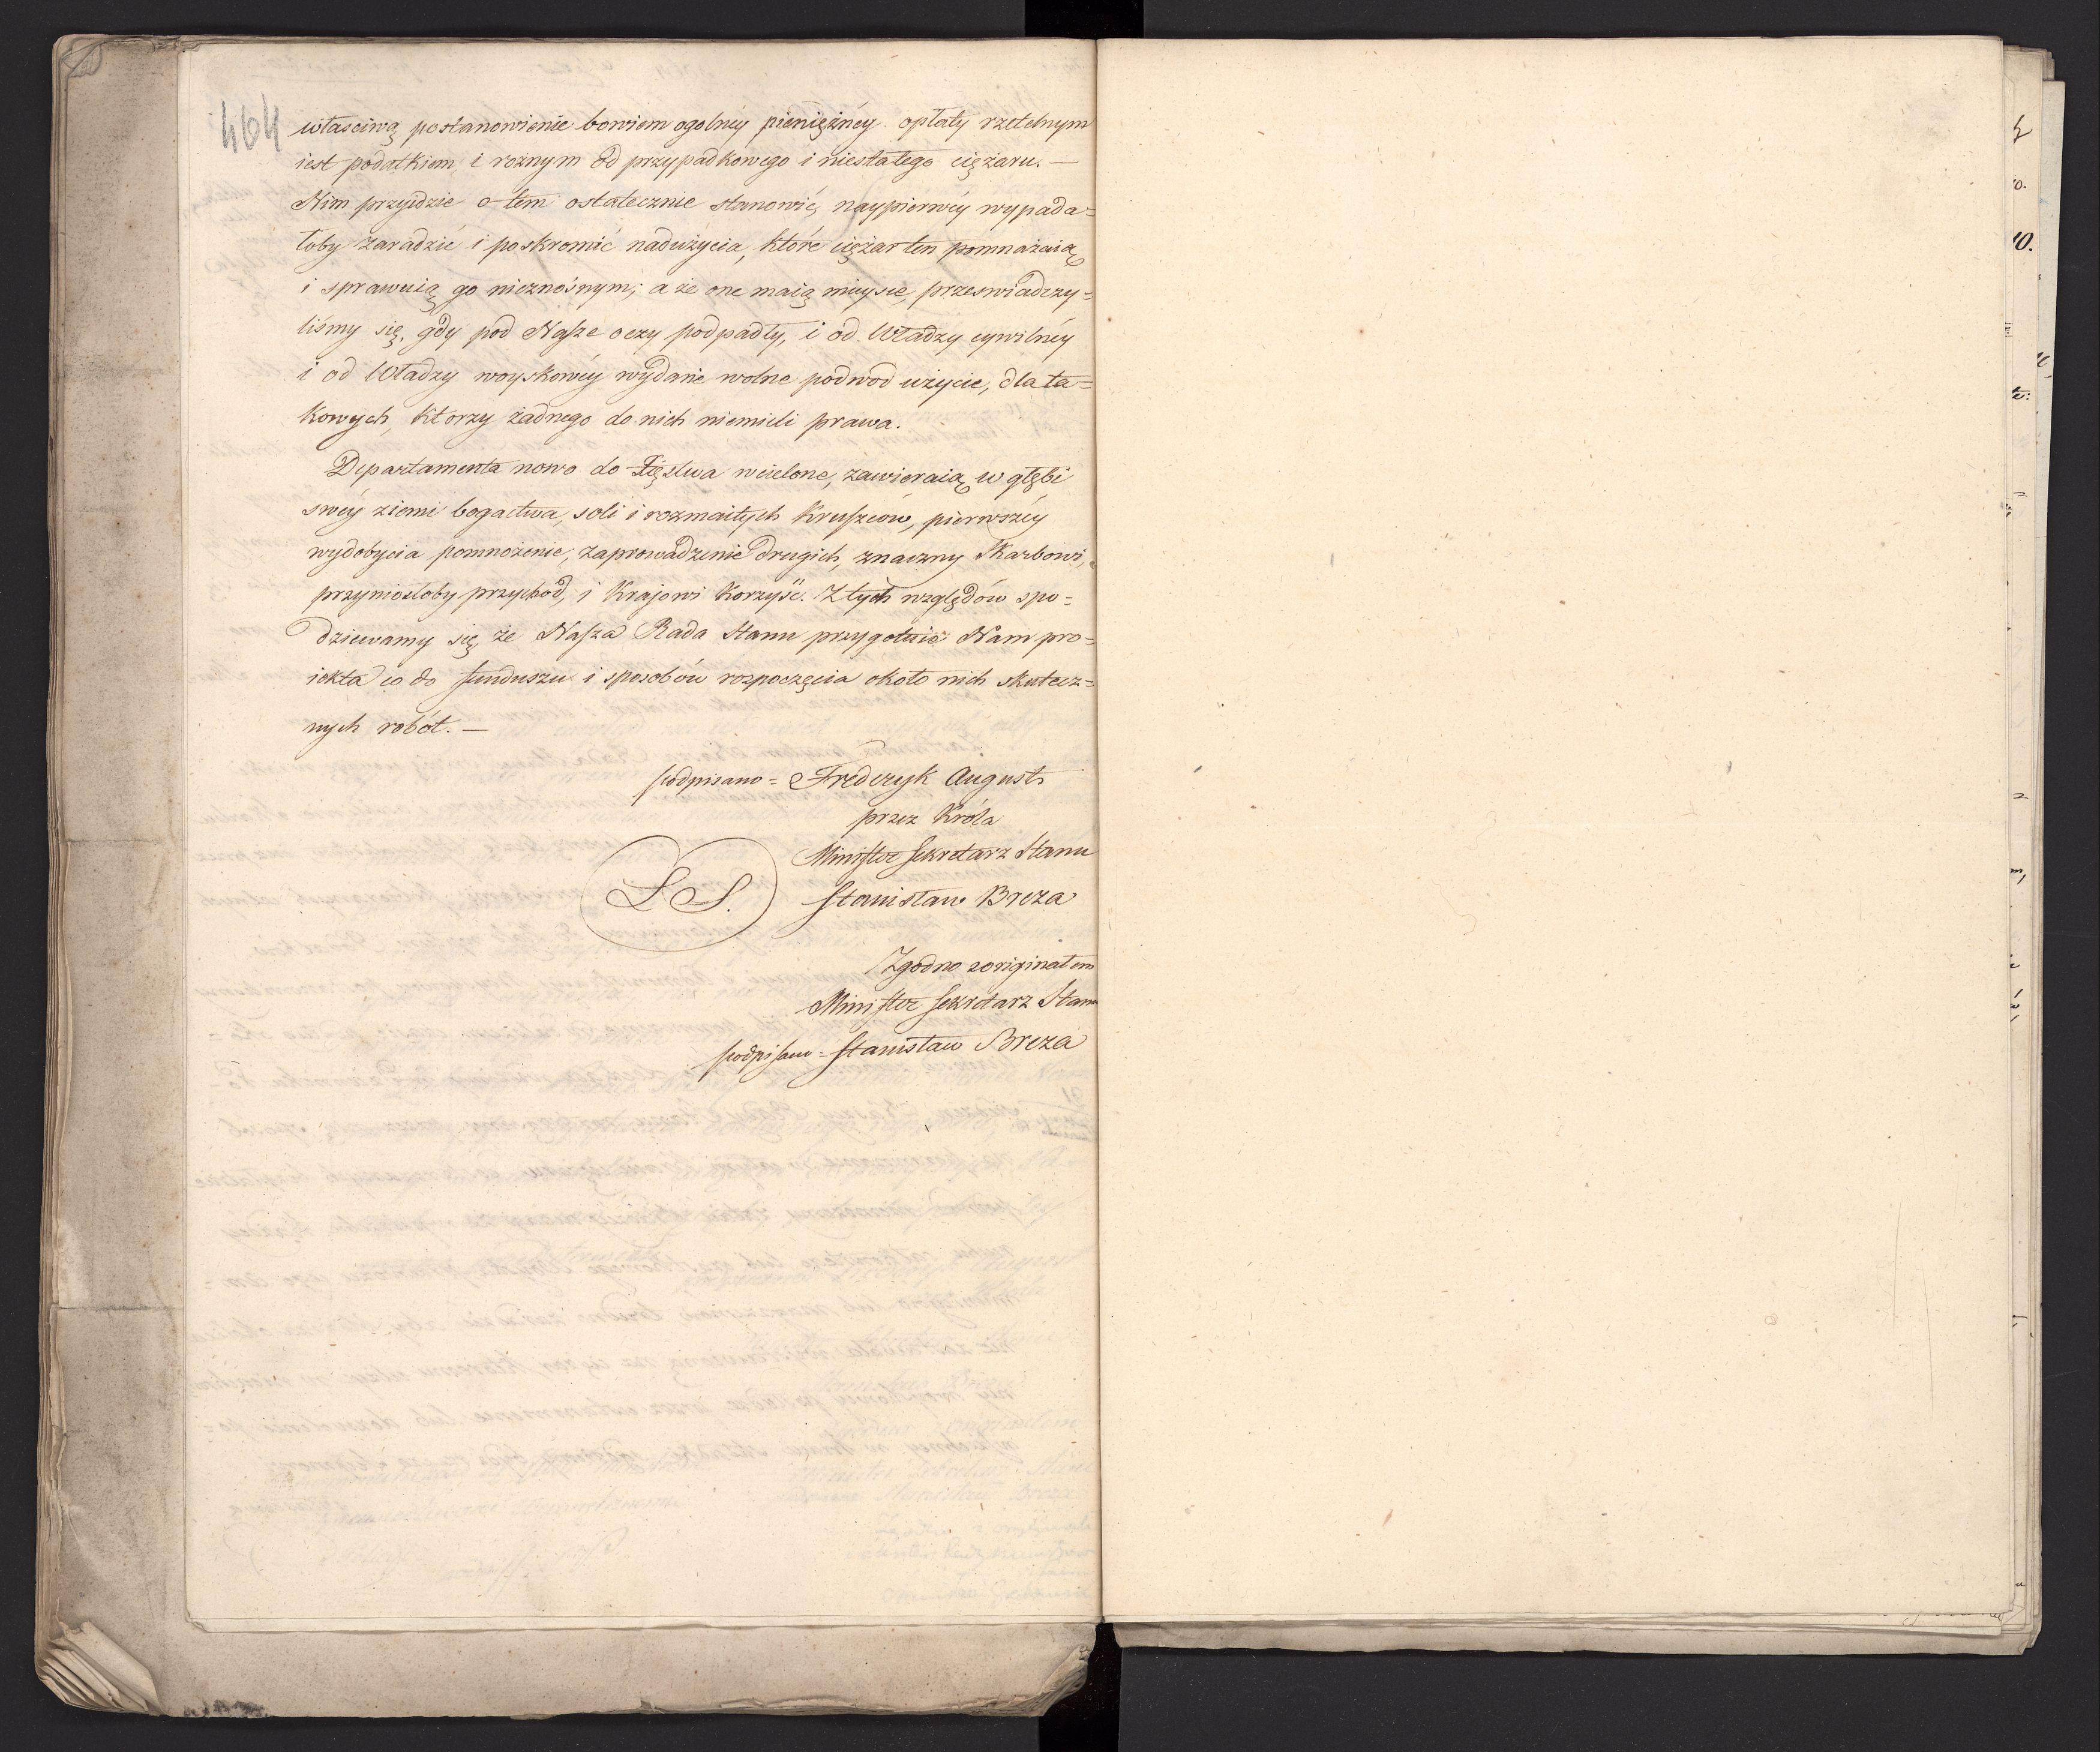 464
właściwą postanowienie bowiem ogolnéy pieniężnéy opłaty rzetelnym
iest podatkiem, i rożnym od przypadkowego i niestałego ciężaru. —
Nim przyidzie o tem ostatecznie stanowić, naypiérwéy wypada=
łoby zaradzić i poskromić nadużycia, które ciężar ten pomnażaią
i sprawuią go nieznośnym; a że one maią mieysce, przeswiadczy=
liśmy się, gdy pod Nasze oczy podpadły, i od Władzy cywilnéy
i od Władzy woyskowéy wydane wolne podwod użycie, dla ta=
kowych, ktorzy żadnego do nich niemieli prawa.
Departamenta nowo do Xięstwa wcielone, zawieraią w głębi
swéy ziemi bogactwa, soli i rozmaitych Kruszców, pierwszéy
wydobycia pomnożenie, zaprowadzenie drugich, znaczny Skarbowi,
przyniosłoby przychód, i Krajowi Korzyść. Z tych względów spo=
dziewamy się, że Nasza Rada Stanu przygotuie Nam pro=
iekta co do funduszu i sposobów rozpoczęcia około nich skutecz=
nych robót. —
podpisano = Fréderyk August
przez Króla
Minister Sekretarz Stanu
L. S. Stanisław Breza
Zgodno z originałem
Minister Sekretarz Stanu
podpisano = Stanisław Breza